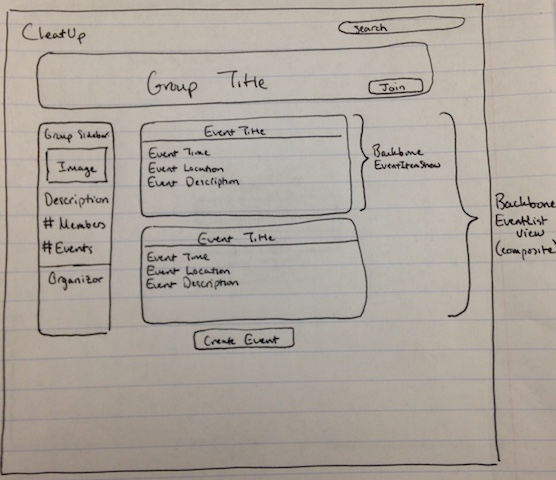 CleatUp
search
Group Title
Join
Group Sidebar
Image
Description
# Members
# Events
Organizor
Event Title
Event Time
Event Location
Event Description
Backbone
EventItemShow
Event Title
Event Time
Event Location
Event Description
Create Event
Backbone
EventList
View
(composite)